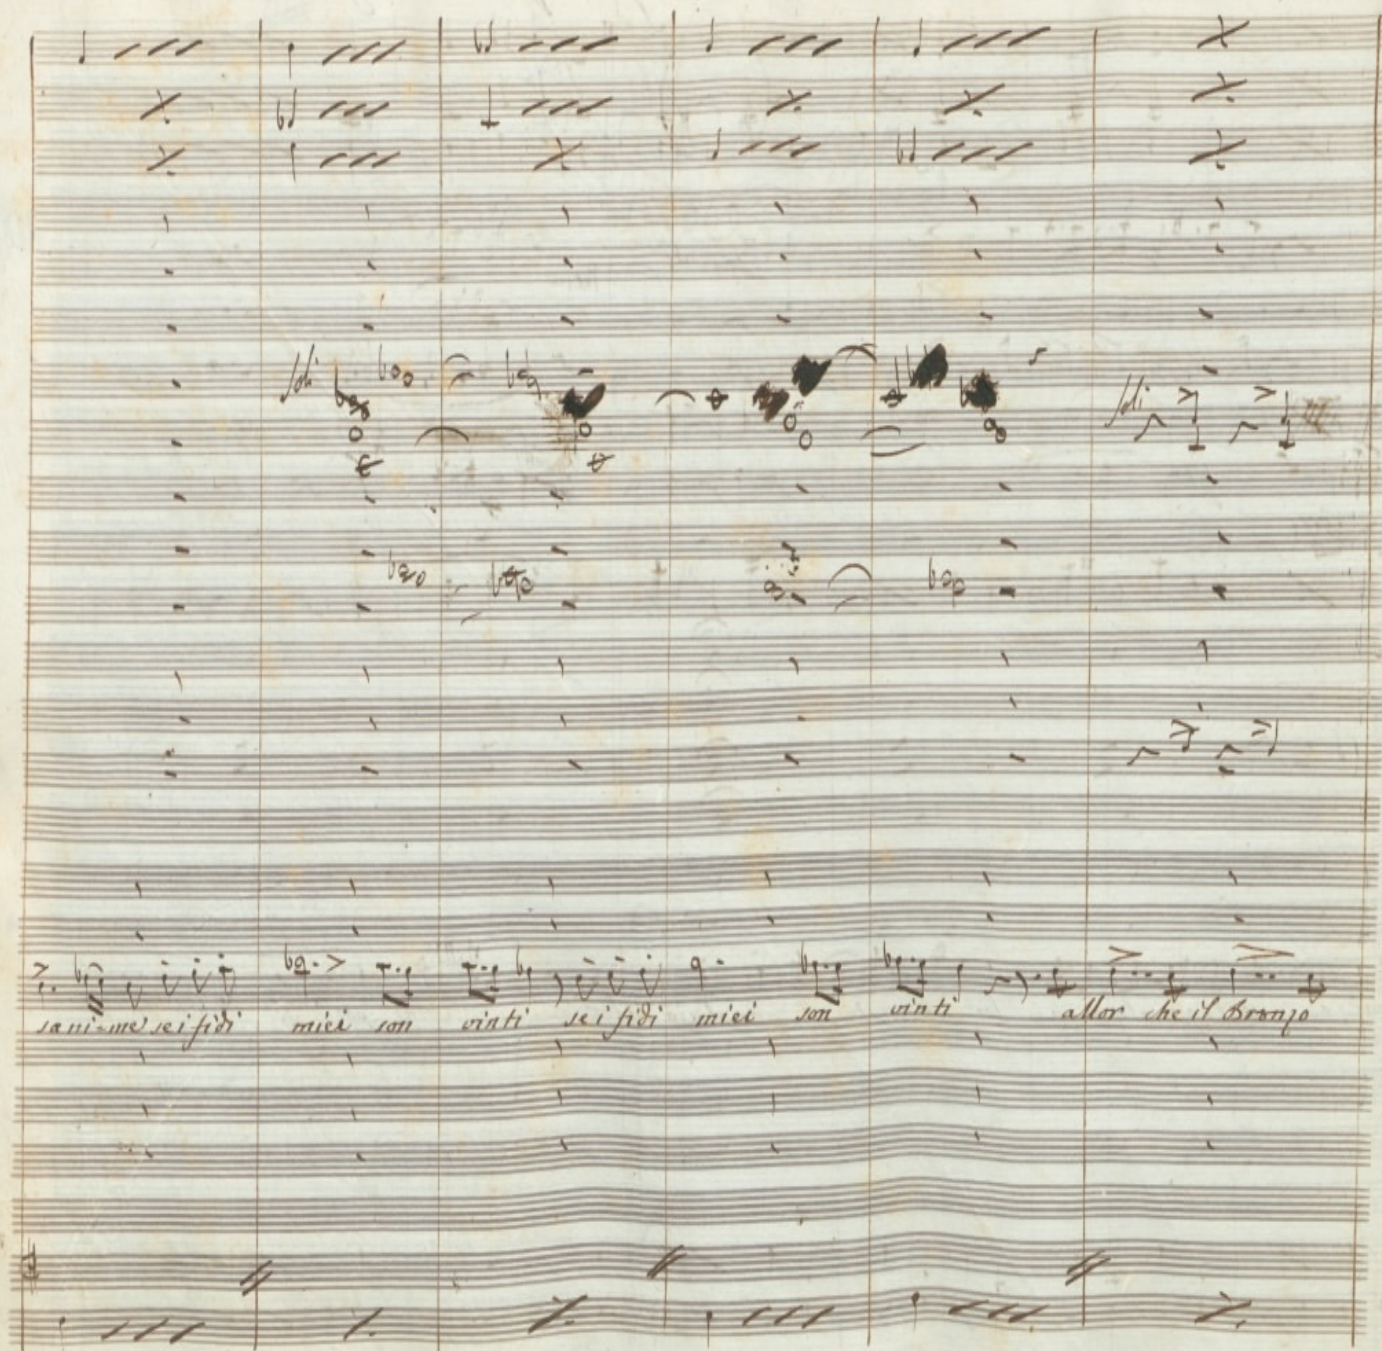 soli
soli
sani-me se i fidi miei son vinti se i fidi miei son vinti allor che il Bronzo